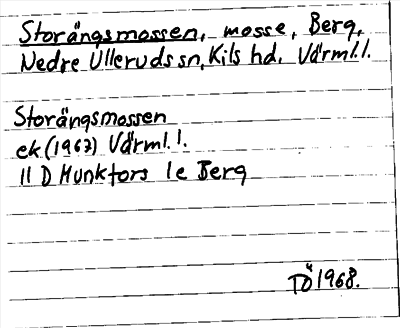 Storängsmossen, mosse, Berg,
Nedre Ulleruds sn, Kils hd. Värml.l.
Storängsmossen
ek. (1967) Värml.l.
11 D Munkfors 1e Berg
TÖ 1968.